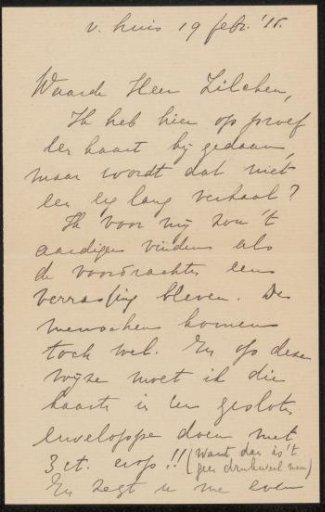 v. huis 19 febr. '18.
Waarde Heer Zilcken,
Ik heb hier op proef
der kaart bij gedaan,
maar wordt dat niet
een erg lang verhaal?
Ik voor mij zou 't
aardiger vinden als
de voordrachten een
verrassing bleven. De
menschen komen
toch wel. En op deze
wijze moet ik die
kaart in een gesloten
enveloppe doen met
3 ct. erop!! (want dan is 't
geen drukwerk meer)
En zegt u me even